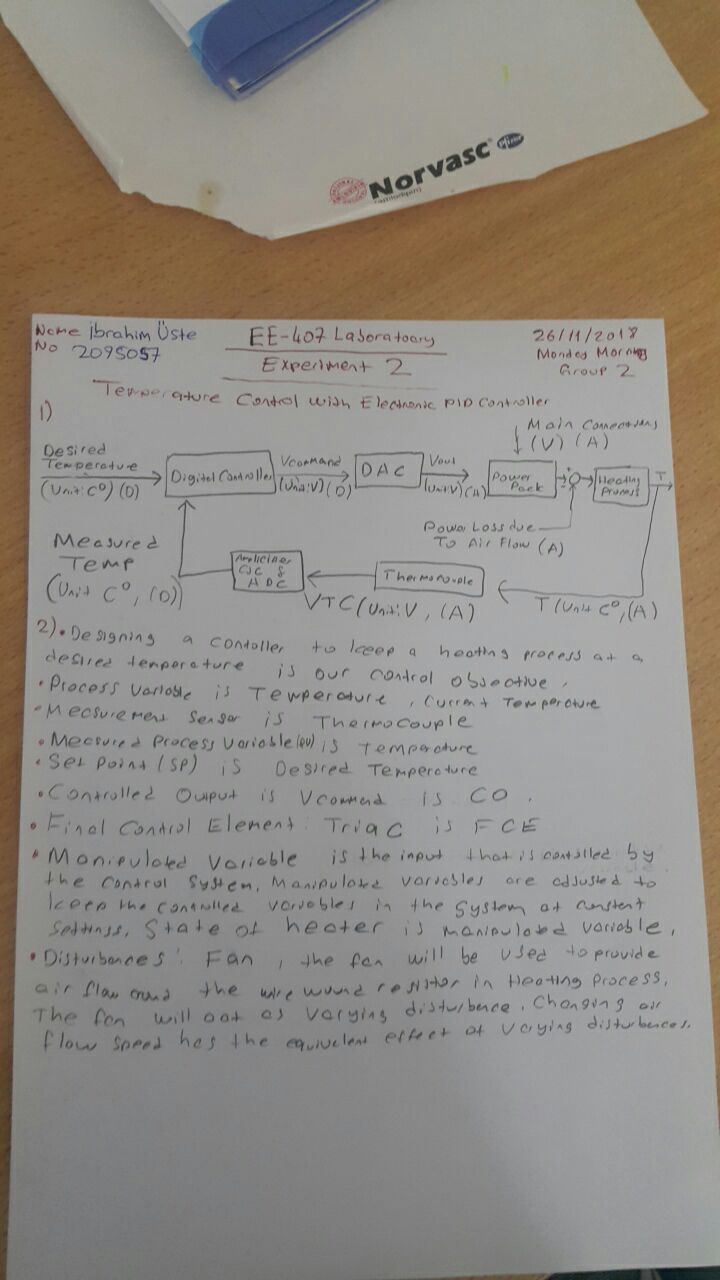 Norvasc
Pfizer
(amlodipin)
Name İbrahim Üste
No 2095057
EE-407 Laboratoary
Experiment 2
26/11/2018
Monday Morning
Group 2
Temperature Control with Electronic PID Controller
1)
Main Connections
(V) (A)
Desired
Temperature
(Unit: C°) (D)
Digital Controller
Vcommand
(Unit: V) (D)
DAC
Vout
(Unit: V) (A)
Power
Pack
Heating
Process
T
Power Loss due
To Air Flow (A)
Measured
Temp
(Unit C°, (D))
Amplifier
CJC &
ADC
Thermocouple
VTC (Unit: V, (A)
T (Unit C°, (A)
2) • Designing a contoller to keep a heating process at a
desired temperature is our control objective.
• Process Variable is Temperature, Current Temperature
• Measurement Sensor is Thermocouple
• Measured Process Variable (PV) is Temperature
• Set Point (SP) is Desired Temperature
• Controlled Output is Vcommand is CO.
• Final Control Element: Triac is FCE
• Manipulated Variable is the input that is contolled by
the control system. Manipulated variables are adjusted to
keep the controlled variables in the system at constant
settings. State of heater is manipulated variable.
• Disturbances: Fan, the fan will be used to provide
air flow around the wire wound resistor in Heating Process.
The fan will act as varying disturbence. Changing air
flow speed has the equivelent effect of varying disturbences.